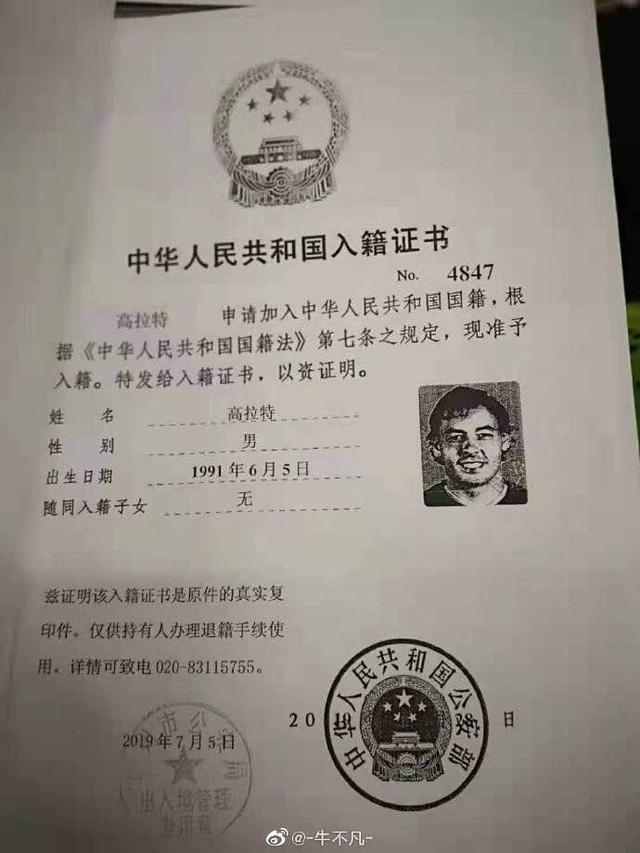 中华人民共和国入籍证书
No. 4847
高拉特 申请加入中华人民共和国国籍，根
据《中华人民共和国国籍法》第七条之规定，现准予
入籍。特发给入籍证书，以资证明。
姓 名 高拉特
性 别 男
出生日期 1991年6月5日
随同入籍子女 无
兹证明该入籍证书是原件的真实复
印件。仅供持有人办理退籍手续使
用。详情可致电020-83115755。
2019年7月5日
出入境管理
中华人民共和国公安部
20 日
@-牛不凡-